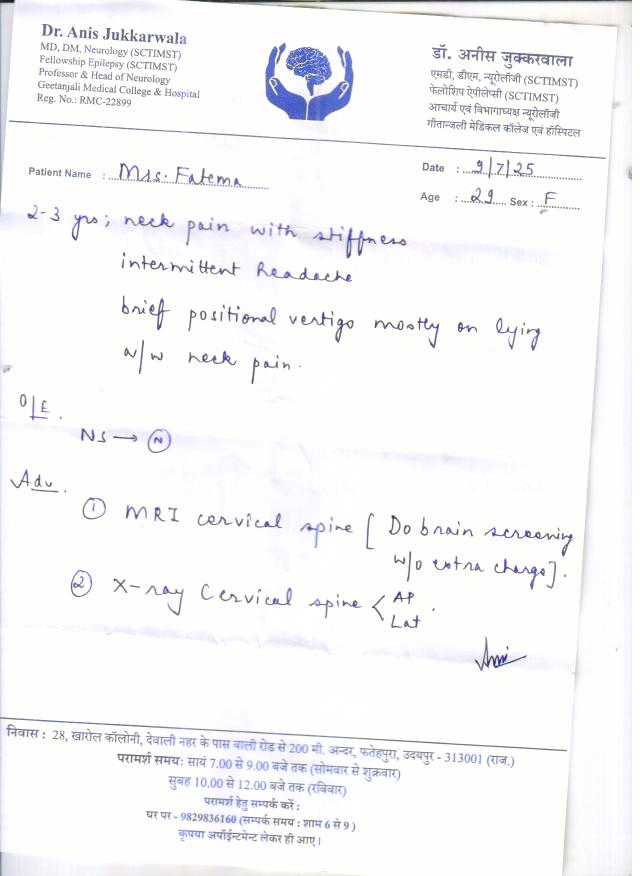 Dr. Anis Jukkarwala
MD, DM, Neurology (SCTIMST)
Fellowship Epilepsy (SCTIMST)
Professor & Head of Neurology
Geetanjali Medical College & Hospital
Reg. No.: RMC-22899
डॉ. अनीस जुक्करवाला
एमडी, डीएम, न्यूरोलॉजी (SCTIMST)
फेलोशिप ऐपीलेप्सी (SCTIMST)
आचार्य एवं विभागाध्यक्ष न्यूरोलॉजी
गीतान्जली मेडिकल कॉलेज एवं हॉस्पिटल
Patient Name : Mrs. Fatema
Date : 9/7/25
Age : 29 Sex : F
2-3 yrs; neck pain with stiffness
intermittent headache
brief positional vertigo mostly on lying
a/w neck pain.
O/E.
NS → N
Adv.
① MRI cervical spine [ Do brain screening
w/o extra charge].
② X-ray Cervical spine < AP
Lat.
निवास : 28, खारोल कॉलोनी, देवाली नहर के पास वाली रोड से 200 मी. अन्दर, फतेहपुरा, उदयपुर - 313001 (राज.)
परामर्श समय: सायं 7.00 से 9.00 बजे तक (सोमवार से शुक्रवार)
सुबह 10.00 से 12.00 बजे तक (रविवार)
परामर्श हेतु सम्पर्क करें :
घर पर - 9829836160 (सम्पर्क समय : शाम 6 से 9 )
कृपया अपॉईन्टमेन्ट लेकर ही आए।